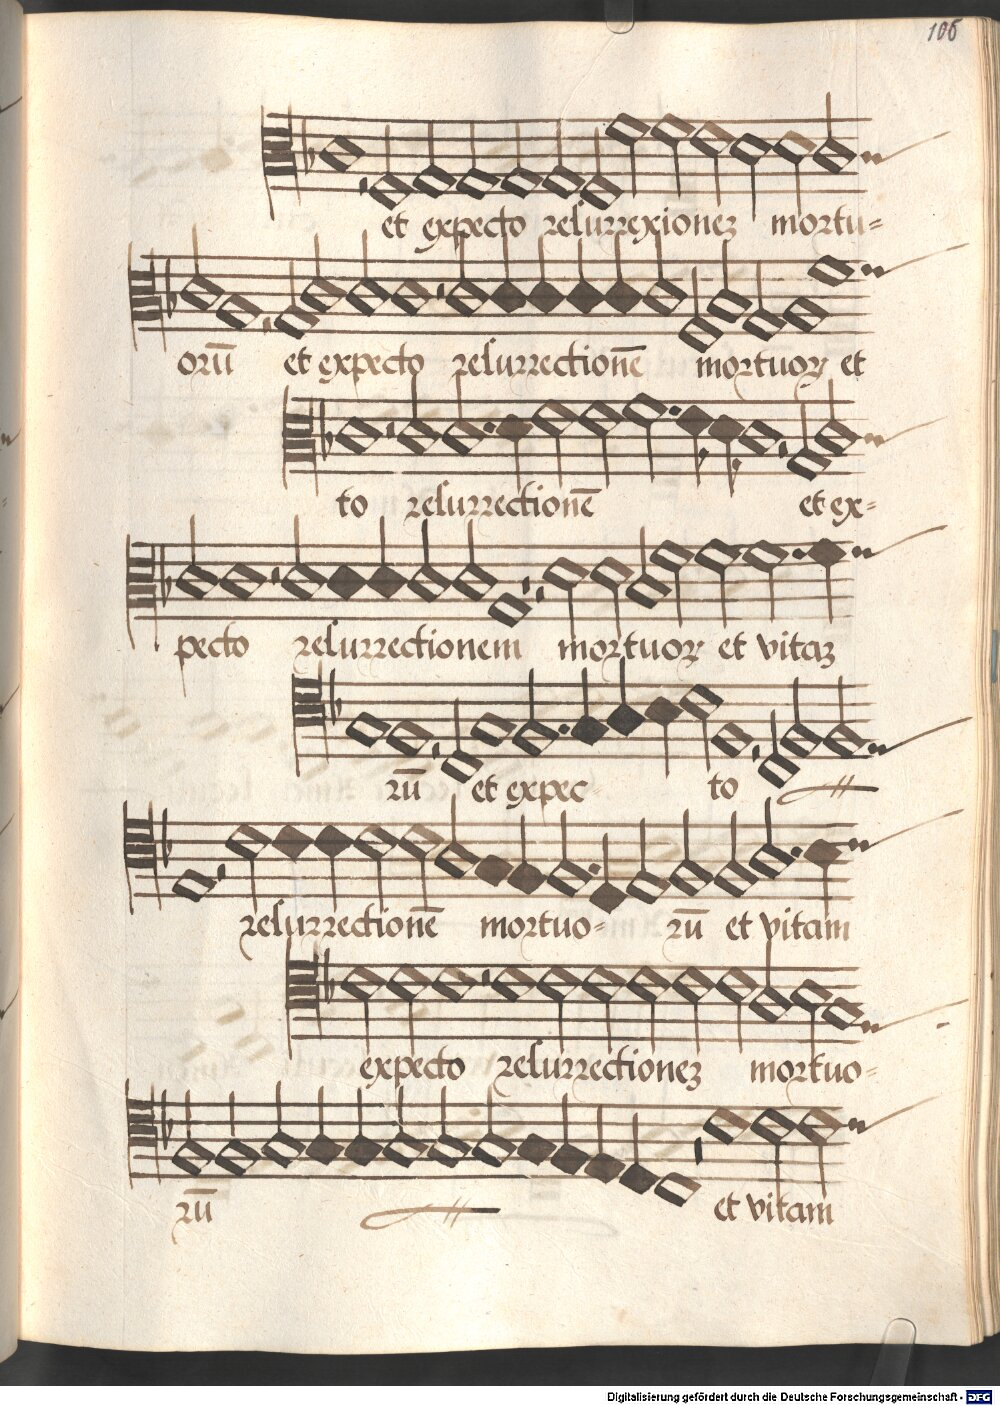 106
et expecto resurrexionez mortu=
orū et expecto resurrectionē mortuoꝝ et
to resurrectionē et ex=
pecto resurrectionem mortuoꝝ et vitaz
rū et expec= to
resurrectionē mortuo= rū et vitam
expecto resurrectionez mortuo=
rū et vitam
Digitalisierung gefördert durch die Deutsche Forschungsgemeinschaft - DFG